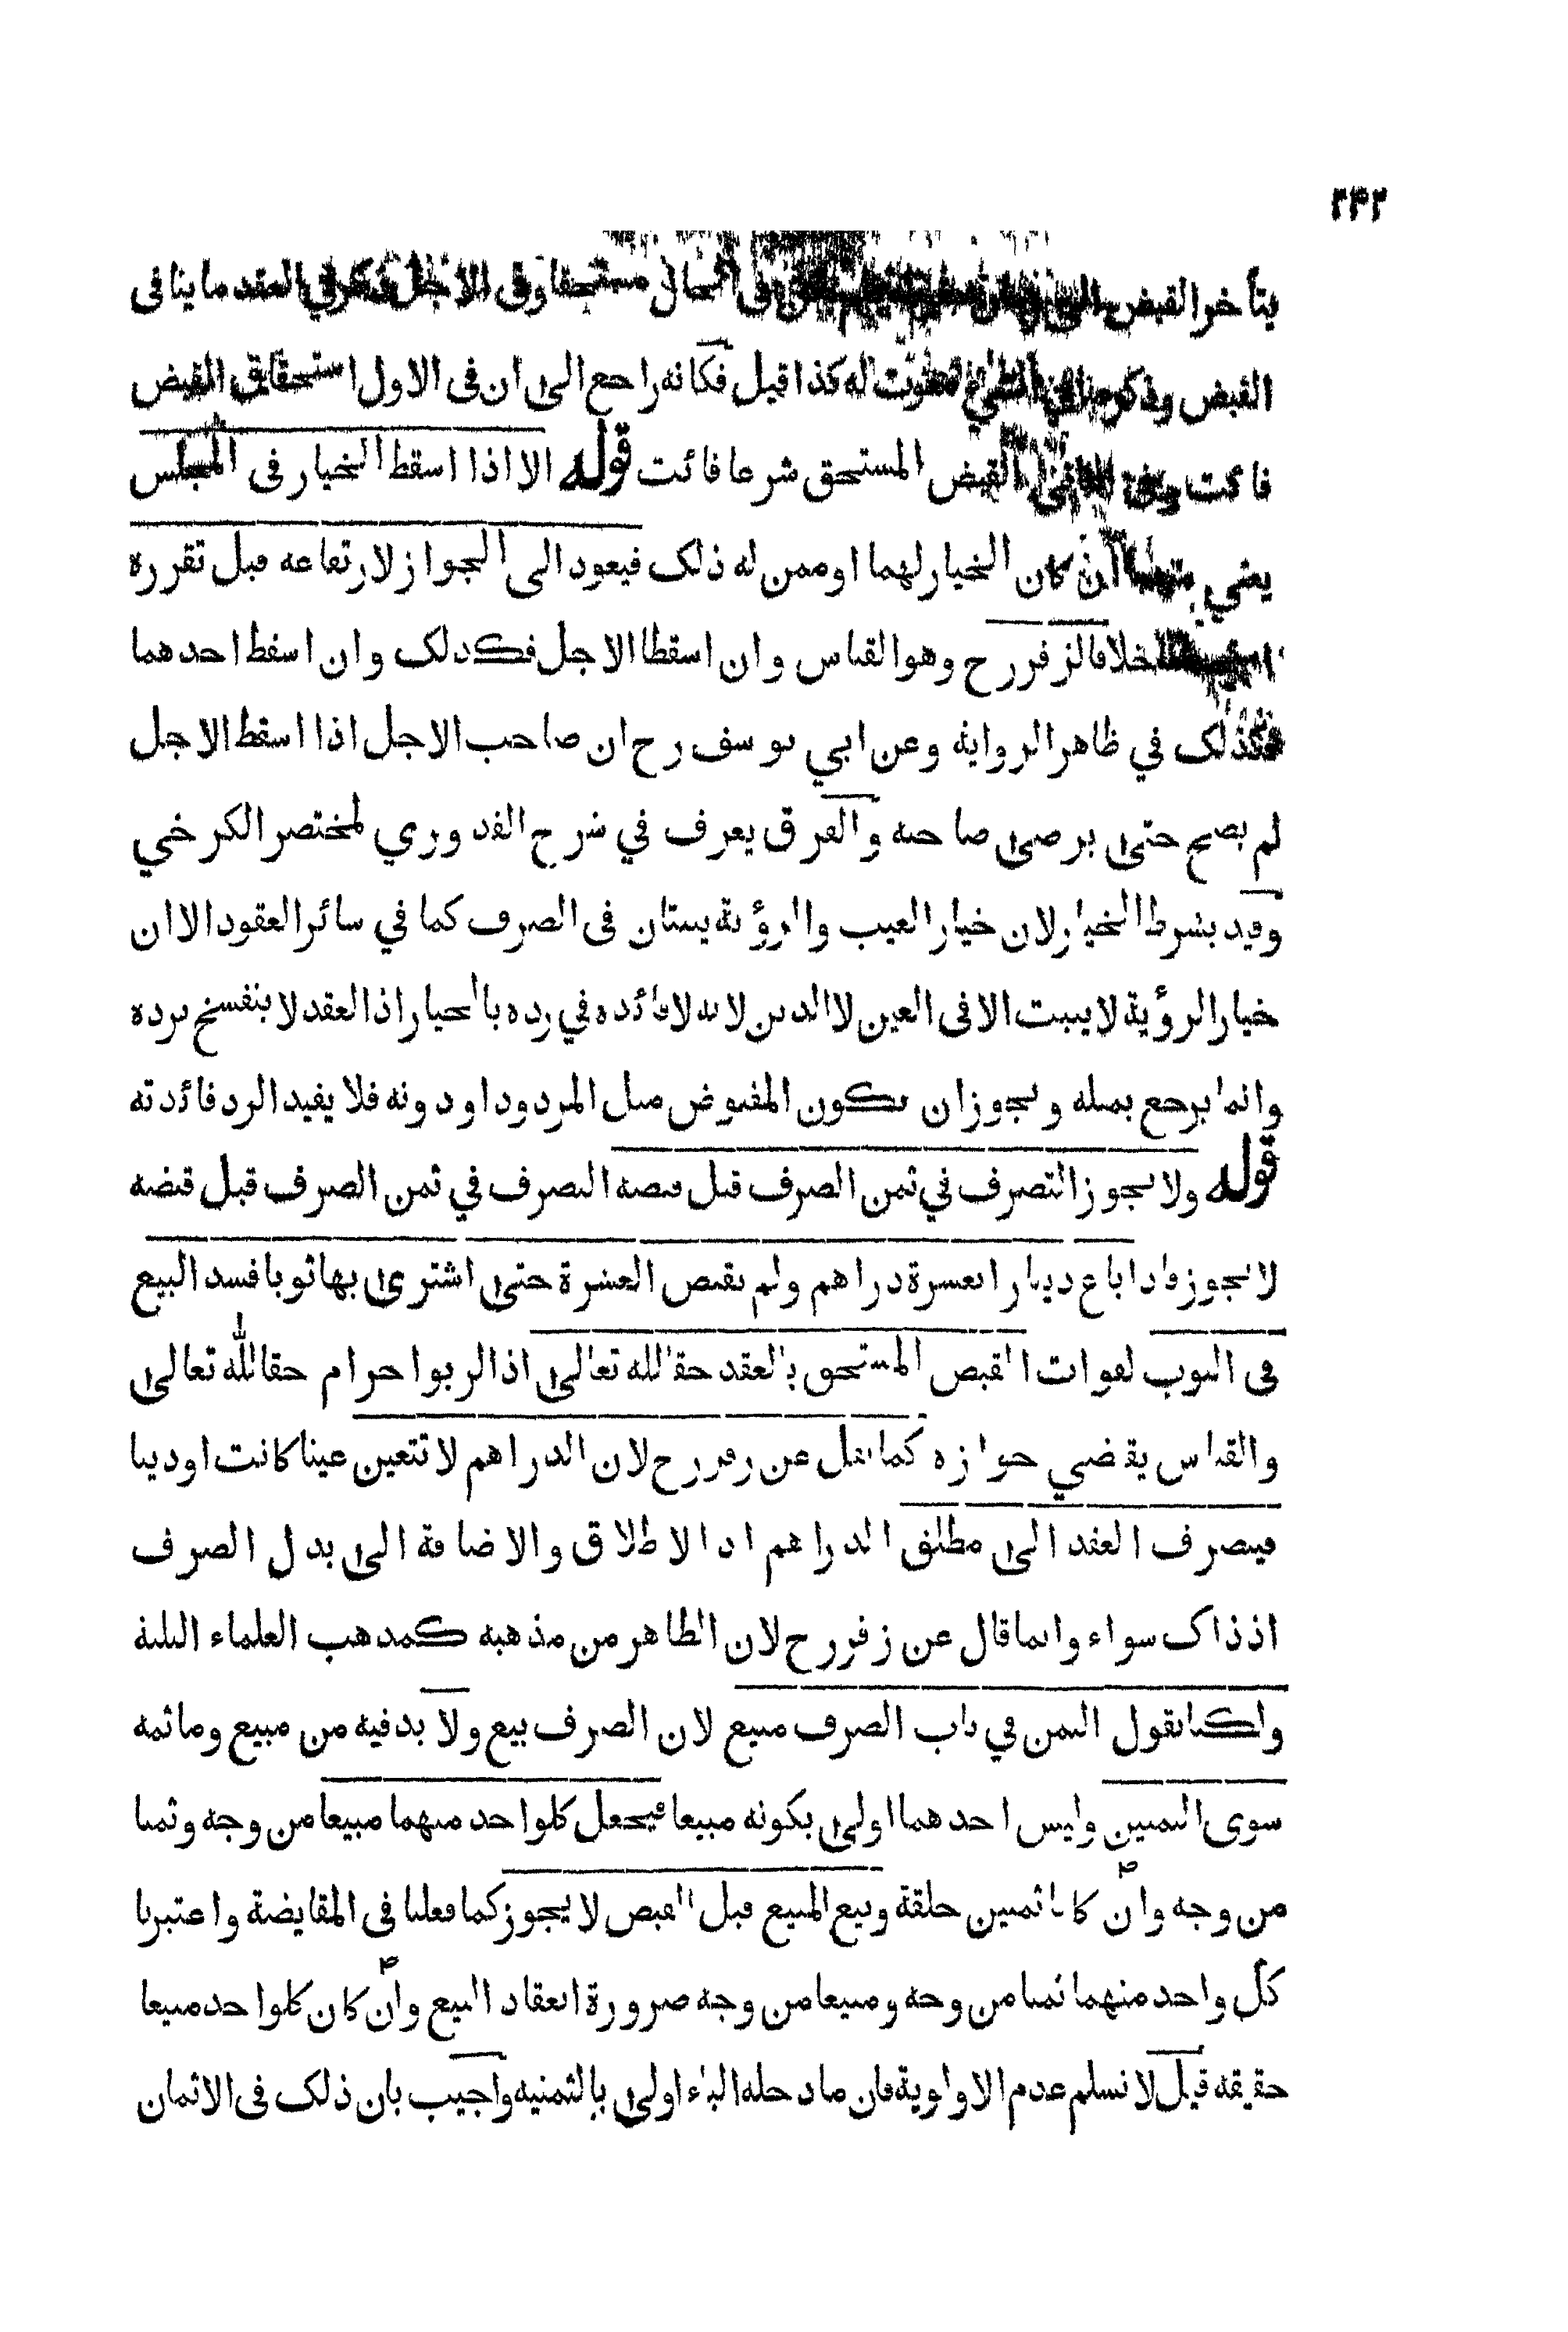 ۲۴۲
يتأخر القبض الى في الحال مستحقا وفى الاجل ذكر في العقد ما ينافى
القبض وذكر مفوت له كذا قيل فكانه راجع الى ان فى الاول استحقاق القبض
فائت وفى القبض المستحق شرعا فائت قوله الا اذا اسقط الخيار فى المجلس
يعني منهما ان كان الخيار لهما او ممن له ذلک فيعود الى الجواز لارتفاعه قبل تقرره
خلافا لزفر رح وهو القياس وان اسقطا الاجل فكذلک وان اسقط احدهما
فكذلک في ظاهر الرواية وعن ابي يوسف رح ان صاحب الاجل اذا اسقط الاجل
لم يصح حتى يرضى صاحبه والفرق يعرف في شرح القدوري لمختصر الكرخي
وقيد بشرط الخيار لان خيار العيب والرؤية يثبتان فى الصرف كما في سائر العقود الا ان
خيار الرؤية لا يثبت الا فى العين لا الدين لانه لا فائده في رده بالخيار اذ العقد لا ينفسخ برده
وانما يرجع بمثله ويجوز ان يكون المقبوض مثل المردود او دونه فلا يفيد الرد فائدته
قوله ولا يجوز التصرف في ثمن الصرف قبل قبضه التصرف في ثمن الصرف قبل قبضه
لا يجوز فاذا باع دينارا بعشرة دراهم ولم يقبض العشرة حتى اشترى بها ثوبا فسد البيع
فى الثوب لفوات القبض المستحق بالعقد حقا لله تعالى اذ الربوا حرام حقا لله تعالى
والقياس يقضي جوازه كما نقل عن زفر رح لان الدراهم لا تتعين عينا كانت او دينا
فينصرف العقد الى مطلق الدراهم اذ الاطلاق والاضافة الى بدل الصرف
اذ ذاک سواء وانما قال عن زفر رح لان الظاهر من مذهبه كمذهب العلماء الثلثة
ولكنا نقول الثمن في باب الصرف مبيع لان الصرف بيع ولا بد فيه من مبيع وما ثمه
سوى الثمنين وليس احدهما اولى بكونه مبيعا فيجعل كلواحد منهما مبيعا من وجه وثمنا
من وجه وان كانا ثمنين خلقة وبيع المبيع قبل القبض لا يجوز كما فعلنا فى المقايضة واعتبرنا
كل واحد منهما ثمنا من وجه ومبيعا من وجه ضرورة انعقاد البيع وان كان كلواحد مبيعا
حقيقه قيل لا نسلم عدم الاولوية فان ما دخله الباء اولى بالثمنيه واجيب بان ذلک فى الاثمان